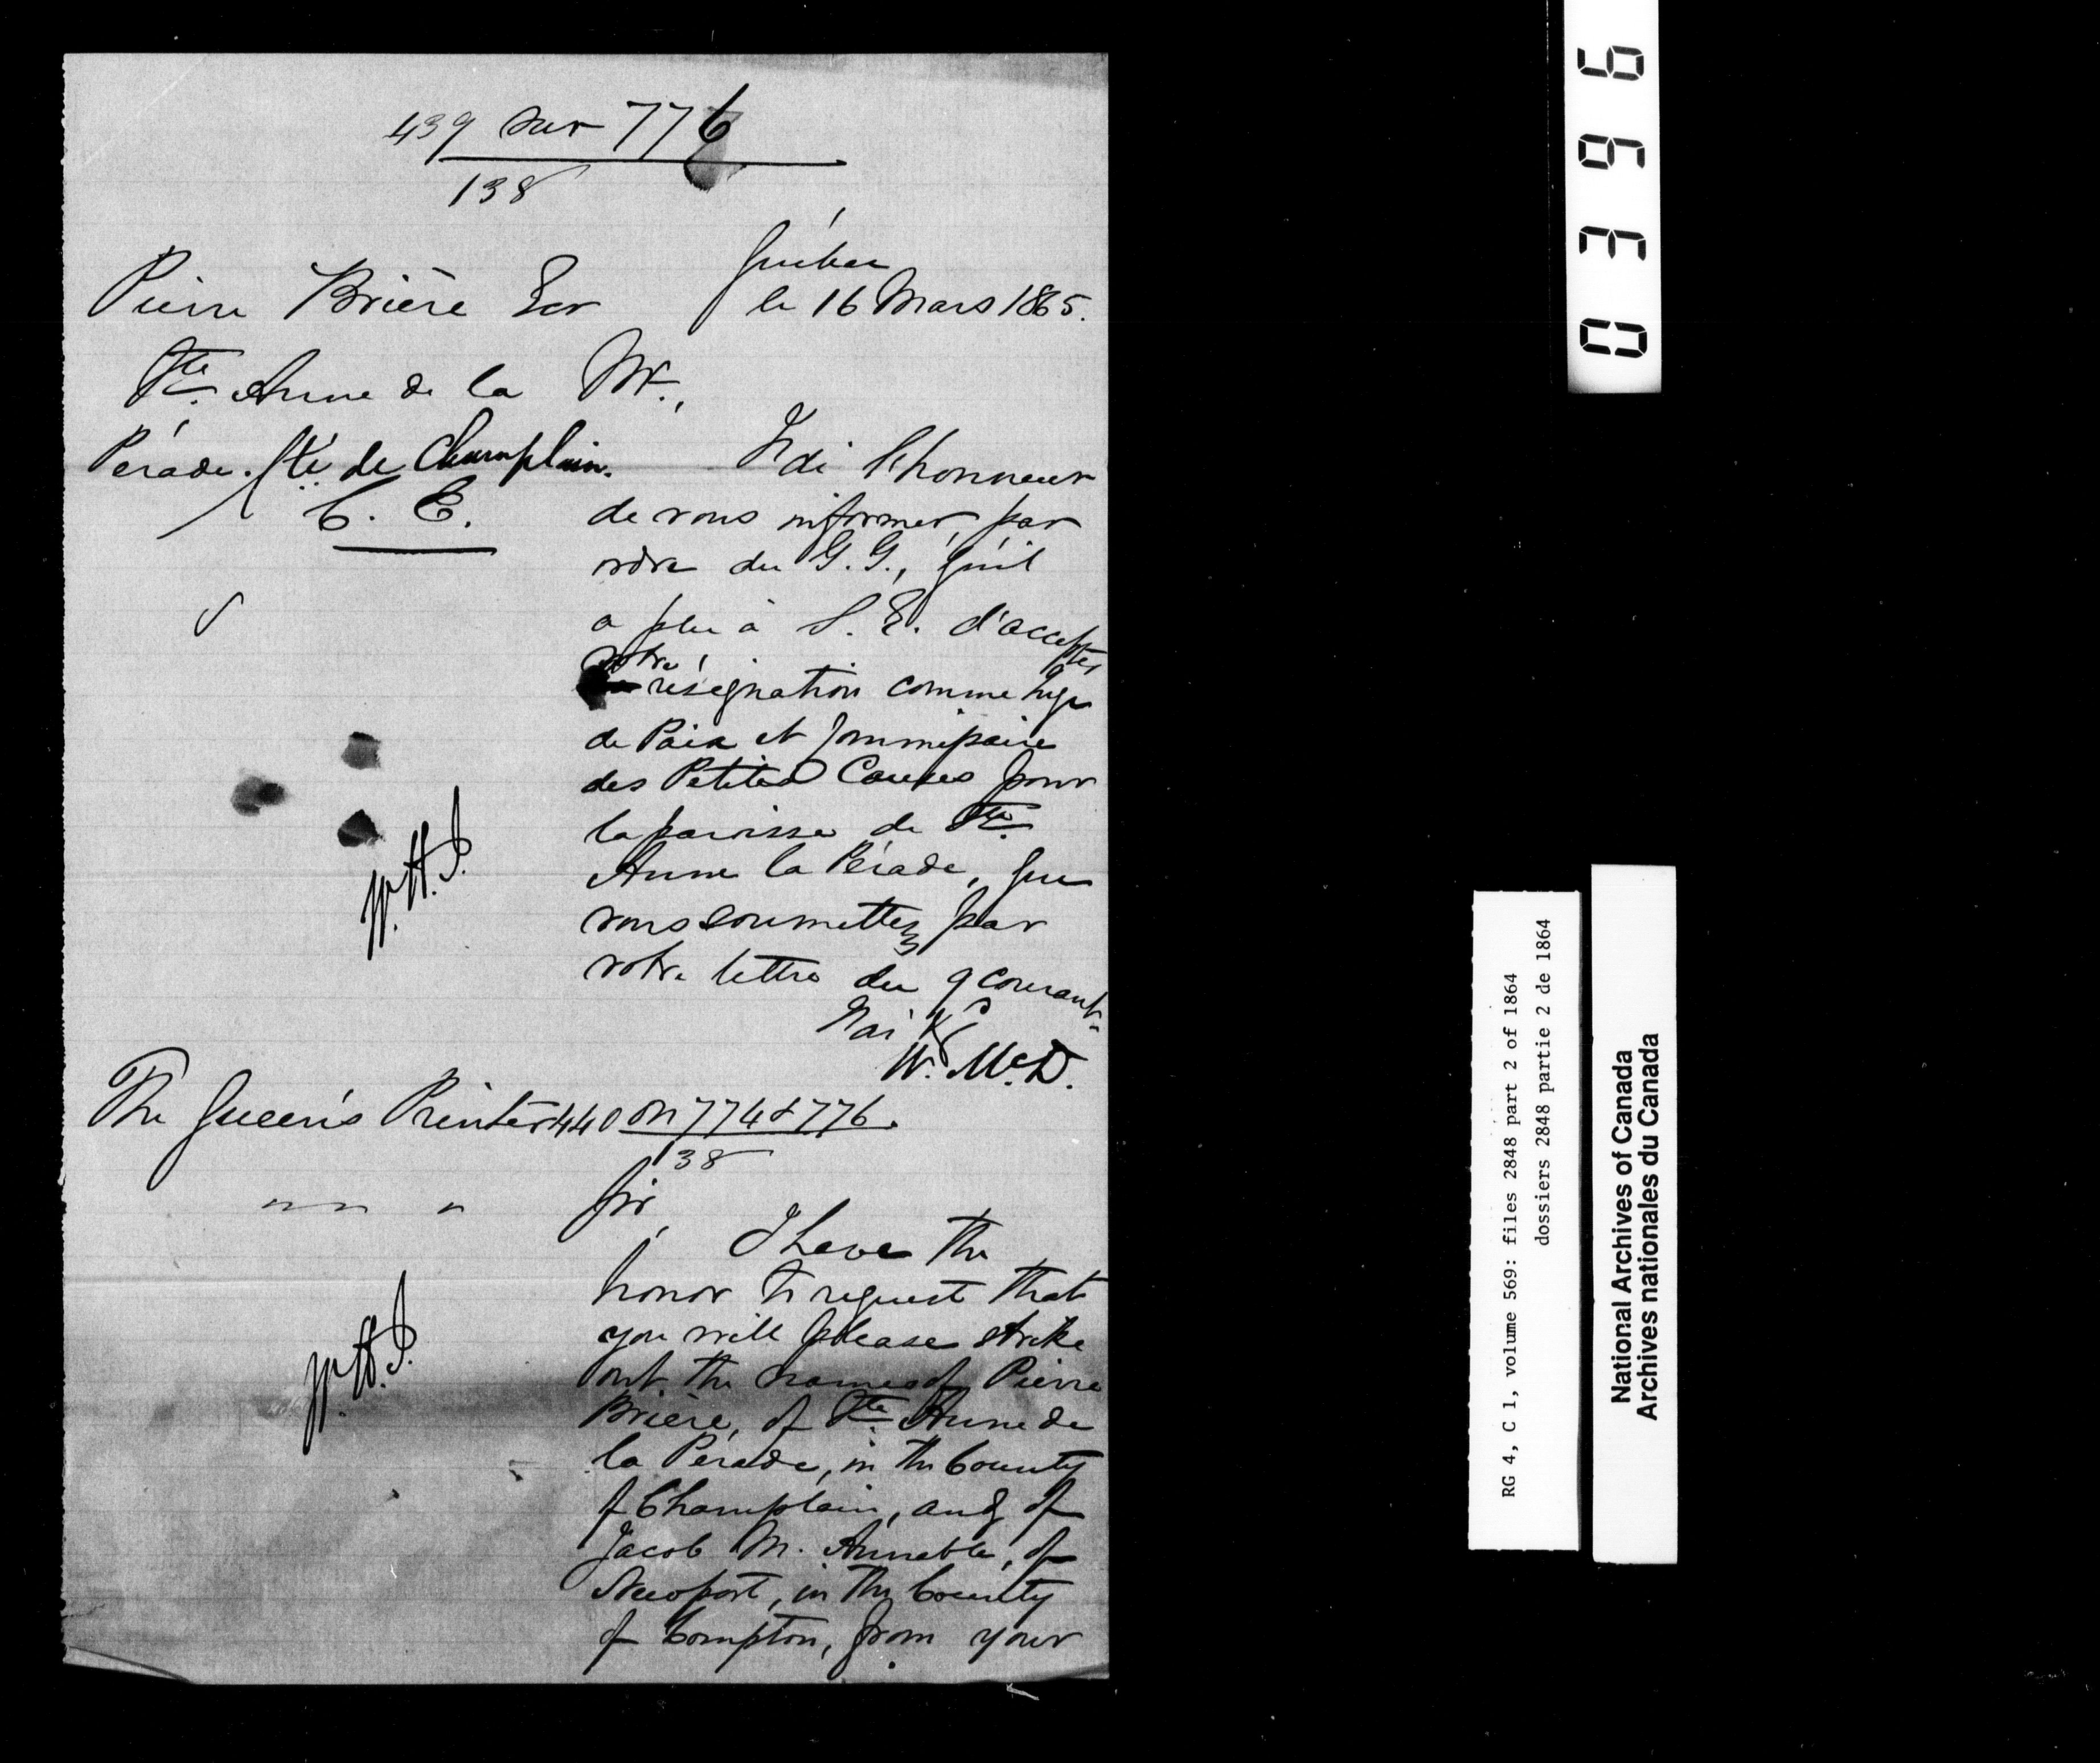 439 sur 776
138
Québec
le 16 Mars 1865.
Pierre Brière Ecr
Ste. Anne de la
Pérade. Cté de Champlain.
C. E.
Mr.,
J'ai l'honneur
de vous informer, par
ordre du G. G., qu'il
a plu à S. E. d'accepter
votre
résignation comme Juge
de Paix et Commissaire
des Petites Causes pour
la paroisse de Ste.
Anne la Pérade, que
vous soumettez par
votre lettre du 9 courant.
J'ai &c
W. McD.
W.H.J.
The Queen's Printer
440 on 774 & 776.
138
" " "
Sir,
I have the
honor to request that
you will please strike
out the names of Pierre
Brière, of Ste. Anne de
la Pérade, in the County
of Champlain, and of
Jacob M. Annable, of
Newport, in the County
of Compton, from your
W.H.J.
0396
RG 4, C 1, volume 569: files 2848 part 2 of 1864
dossiers 2848 partie 2 de 1864
National Archives of Canada
Archives nationales du Canada